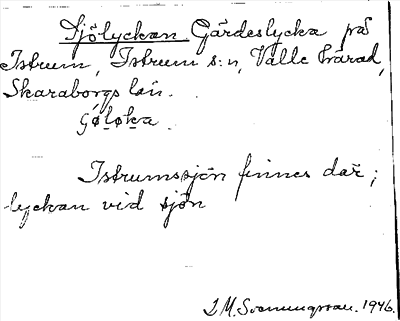 Sjölyckan Gärdeslycka på
Istrum, Istrum s:n, Valle härad,
Skaraborgs län.
Istrumssjön finnes där;
lyckan vid sjön
J.M. Svenningsson. 1946.